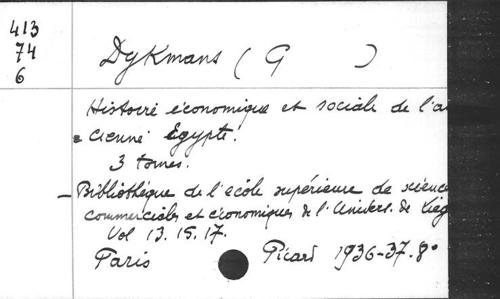 413
74
6
Dykmans (G )
Histoire économique et sociale de l'a
cienne Egypte.
3 tomes.
Bibliothèque de l'école supérieure de science
commerciales et économiques de l'Univers. de Liég
Vol 13. 15. 17.
Paris Picard 1936-37. 8º